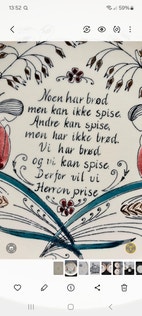 13:52
52%
Noen har brød
men kan ikke spise,
Andre kan spise,
men har ikke brød.
Vi har brød
og vi kan spise
Derfor vil vi
Herren prise